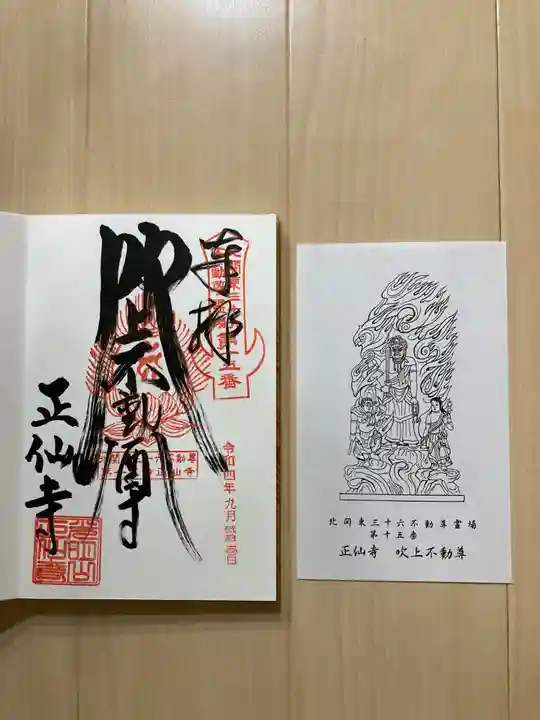 奉拝
第十五番
吹上不動尊
正仙寺
令和四年九月弐拾壱日
北関東三十六不動尊霊場
第十五番
正仙寺 吹上不動尊